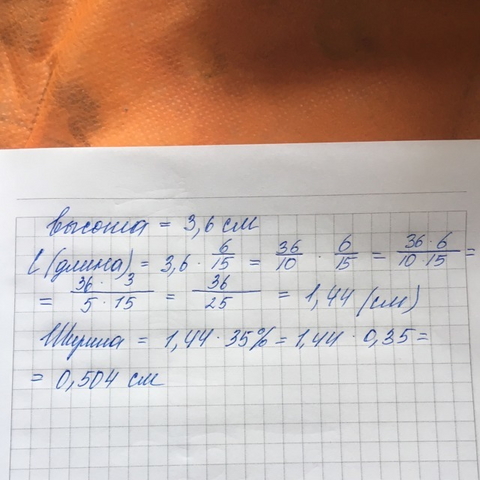 Высота = 3,6 см
l (длина) = 3,6 · 6/15 = 36/10 · 6/15 = 36 · 6/10 · 15 =
= 36 · 3/5 · 15 = 36/25 = 1,44 (см)
Ширина = 1,44 · 35% = 1,44 · 0,35 =
= 0,504 см